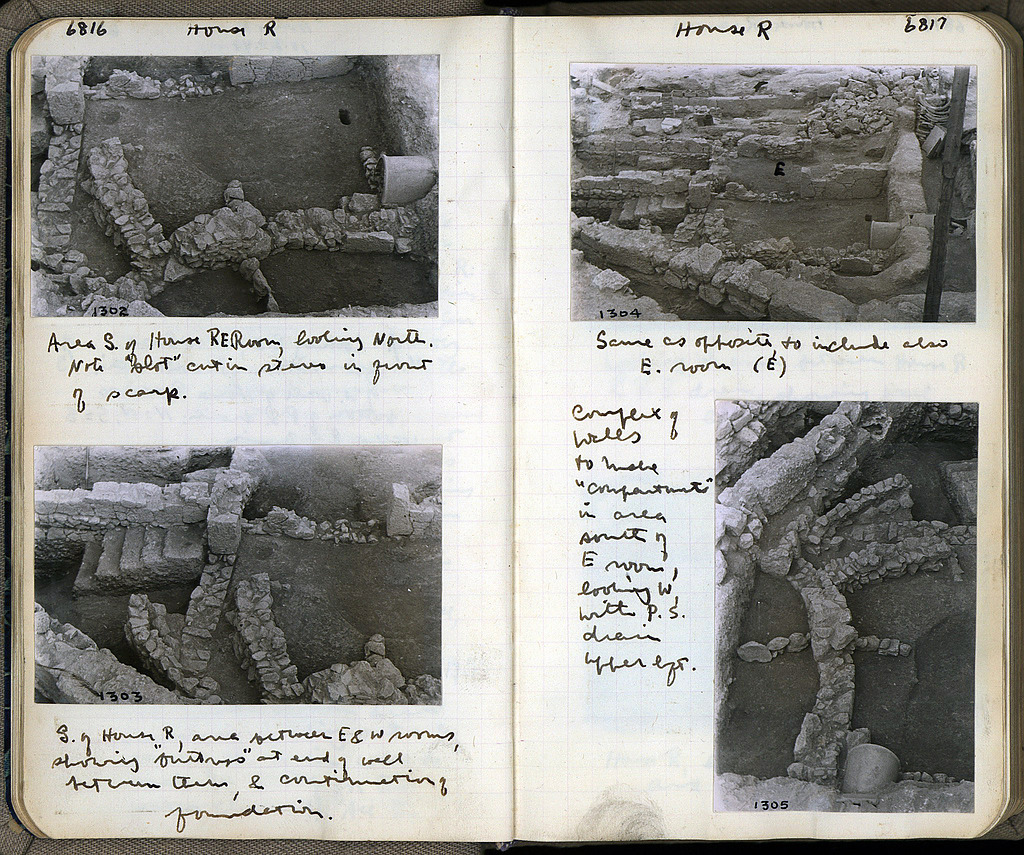 6816 House R
1302
Area S. of House R E Room, looking North.
Note "slot" cut in stereo in front
of scarp.
1303
S. of House R, area between E & W rooms,
showing "buttress" at end of wall
between them, & continuation of
foundation.
House R 6817
E
1304
Same as opposite, to include also
E. room (E)
Complex of
walls
to make
"compartments"
in area
south of
E room,
looking W,
with P.S.
drain
upper left.
1305